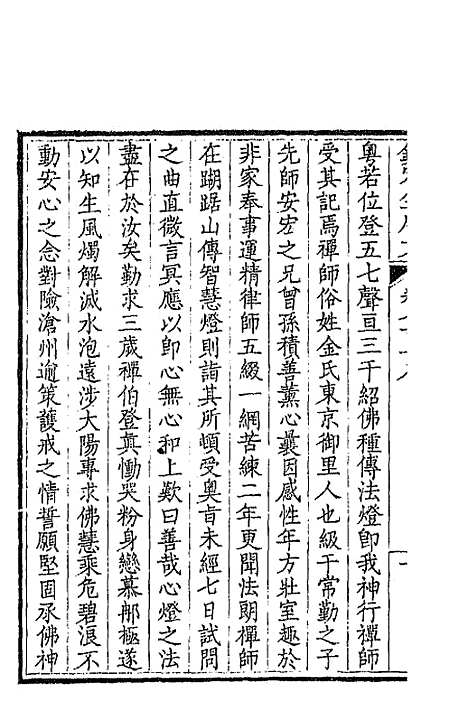 粵若位登五七聲亘三千紹佛種傳法燈卽我神行禪師
受其記焉禪師俗姓金氏東京御里人也級干常勤之子
先師安宏之兄曾孫積善薰心曩因感性年方壯室趣於
非家奉事運精律師五綴一網苦練二年更聞法朗禪師
在䠒踞山傳智慧燈則詣其所頓受奥旨未經七日試問
之曲直微言冥應以卽心無心和上歎曰善哉心燈之法
盡在於汝矣勤求三歲禪伯登真慟哭粉身戀慕那極遂
以知生風燭解滅水泡遠涉大陽專求佛慧乘危碧浪不
動安心之念對險滄州逾策護戒之情誓願堅固承佛神